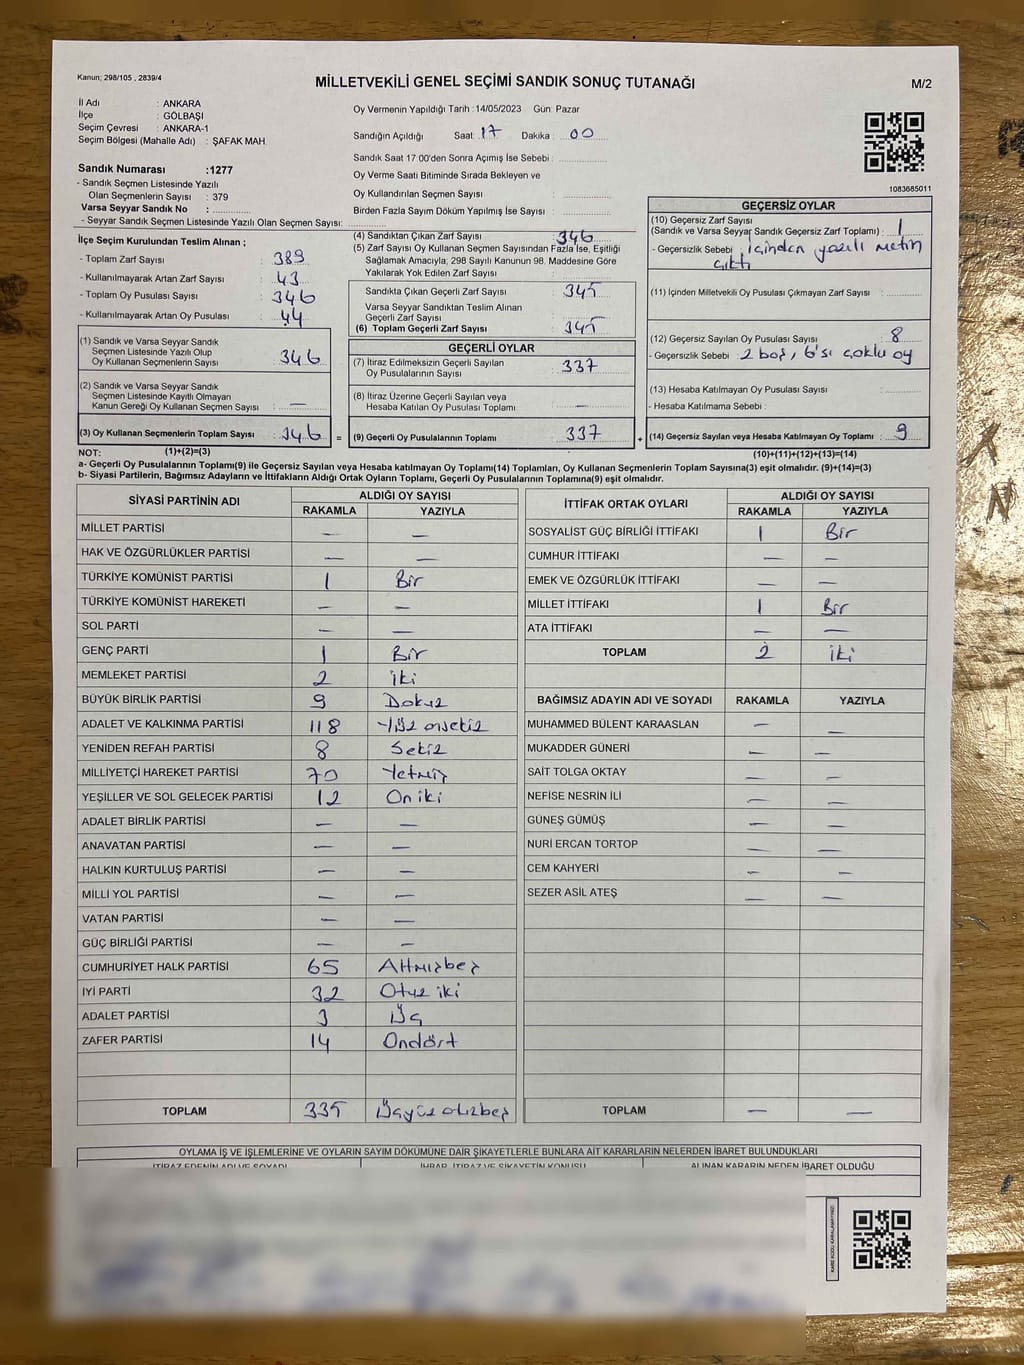 Kanun; 298/105 , 2839/4
MİLLETVEKİLİ GENEL SEÇİMİ SANDIK SONUÇ TUTANAĞI
M/2
İl Adı : ANKARA
İlçe : GÖLBAŞI
Seçim Çevresi : ANKARA-1
Seçim Bölgesi (Mahalle Adı) : ŞAFAK MAH.
Sandık Numarası :1277
- Sandık Seçmen Listesinde Yazılı
Olan Seçmenlerin Sayısı : 379
Varsa Seyyar Sandık No : ..............
- Seyyar Sandık Seçmen Listesinde Yazılı Olan Seçmen Sayısı: ..............
Oy Vermenin Yapıldığı Tarih :14/05/2023 Gün: Pazar
Sandığın Açıldığı Saat: 17 Dakika : 00
Sandık Saat 17:00'den Sonra Açımış İse Sebebi : ..............
Oy Verme Saati Bitiminde Sırada Bekleyen ve
Oy Kullandırılan Seçmen Sayısı : ..............
Birden Fazla Sayım Döküm Yapılmış İse Sayısı : ..............
1083685011
İlçe Seçim Kurulundan Teslim Alınan ;
- Toplam Zarf Sayısı : 389
- Kullanılmayarak Artan Zarf Sayısı : 43
- Toplam Oy Pusulası Sayısı : 346
- Kullanılmayarak Artan Oy Pusulası : 44
(1) Sandık ve Varsa Seyyar Sandık
Seçmen Listesinde Yazılı Olup
Oy Kullanan Seçmenlerin Sayısı : 346
(2) Sandık ve Varsa Seyyar Sandık
Seçmen Listesinde Kayıtlı Olmayan
Kanun Gereği Oy Kullanan Seçmen Sayısı : —
(3) Oy Kullanan Seçmenlerin Toplam Sayısı : 346 =
(1)+(2)=(3)
(4) Sandıktan Çıkan Zarf Sayısı : 346
(5) Zarf Sayısı Oy Kullanan Seçmen Sayısından Fazla İse, Eşitliği
Sağlamak Amacıyla; 298 Sayılı Kanunun 98. Maddesine Göre
Yakılarak Yok Edilen Zarf Sayısı : ..............
Sandıkta Çıkan Geçerli Zarf Sayısı : 345
Varsa Seyyar Sandıktan Teslim Alınan
Geçerli Zarf Sayısı : ..............
(6) Toplam Geçerli Zarf Sayısı : 345
GEÇERLİ OYLAR
(7) İtiraz Edilmeksizin Geçerli Sayılan
Oy Pusulalarının Sayısı : 337
(8) İtiraz Üzerine Geçerli Sayılan veya
Hesaba Katılan Oy Pusulası Toplamı : —
(9) Geçerli Oy Pusulalarının Toplamı : 337 +
GEÇERSİZ OYLAR
(10) Geçersiz Zarf Sayısı
(Sandık ve Varsa Seyyar Sandık Geçersiz Zarf Toplamı) : 1
- Geçersizlik Sebebi : içinden yazılı metin
çıktı
(11) İçinden Milletvekili Oy Pusulası Çıkmayan Zarf Sayısı : ..............
(12) Geçersiz Sayılan Oy Pusulası Sayısı : 8
- Geçersizlik Sebebi : 2 boş, 6'sı çoklu oy
(13) Hesaba Katılmayan Oy Pusulası Sayısı : ..............
- Hesaba Katılmama Sebebi :
(14) Geçersiz Sayılan veya Hesaba Katılmayan Oy Toplamı : 9
(10)+(11)+(12)+(13)=(14)
NOT:
a- Geçerli Oy Pusulalarının Toplamı(9) ile Geçersiz Sayılan veya Hesaba katılmayan Oy Toplamı(14) Toplamları, Oy Kullanan Seçmenlerin Toplam Sayısına(3) eşit olmalıdır. (9)+(14)=(3)
b- Siyasi Partilerin, Bağımsız Adayların ve İttifakların Aldığı Ortak Oyların Toplamı, Geçerli Oy Pusulalarının Toplamına(9) eşit olmalıdır.
SİYASİ PARTİNİN ADI ALDIĞI OY SAYISI
RAKAMLA YAZIYLA
MİLLET PARTİSİ — —
HAK VE ÖZGÜRLÜKLER PARTİSİ — —
TÜRKİYE KOMÜNİST PARTİSİ 1 Bir
TÜRKİYE KOMÜNİST HAREKETİ — —
SOL PARTİ — —
GENÇ PARTİ 1 Bir
MEMLEKET PARTİSİ 2 İki
BÜYÜK BİRLİK PARTİSİ 9 Dokuz
ADALET VE KALKINMA PARTİSİ 118 Yüz onsekiz
YENİDEN REFAH PARTİSİ 8 Sekiz
MİLLİYETÇİ HAREKET PARTİSİ 70 Yetmiş
YEŞİLLER VE SOL GELECEK PARTİSİ 12 On iki
ADALET BİRLİK PARTİSİ — —
ANAVATAN PARTİSİ — —
HALKIN KURTULUŞ PARTİSİ — —
MİLLİ YOL PARTİSİ — —
VATAN PARTİSİ — —
GÜÇ BİRLİĞİ PARTİSİ — —
CUMHURİYET HALK PARTİSİ 65 Altmışbeş
İYİ PARTİ 32 Otuz iki
ADALET PARTİSİ 3 Üç
ZAFER PARTİSİ 14 Ondört
TOPLAM 335 Üçyüz otuzbeş
İTTİFAK ORTAK OYLARI ALDIĞI OY SAYISI
RAKAMLA YAZIYLA
SOSYALİST GÜÇ BİRLİĞİ İTTİFAKI 1 Bir
CUMHUR İTTİFAKI — —
EMEK VE ÖZGÜRLÜK İTTİFAKI — —
MİLLET İTTİFAKI 1 Bir
ATA İTTİFAKI — —
TOPLAM 2 İki
BAĞIMSIZ ADAYIN ADI VE SOYADI RAKAMLA YAZIYLA
MUHAMMED BÜLENT KARAASLAN — —
MUKADDER GÜNERİ — —
SAİT TOLGA OKTAY — —
NEFİSE NESRİN İLİ — —
GÜNEŞ GÜMÜŞ — —
NURİ ERCAN TORTOP — —
CEM KAHYERİ — —
SEZER ASİL ATEŞ — —
TOPLAM — —
OYLAMA İŞ VE İŞLEMLERİNE VE OYLARIN SAYIM DÖKÜMÜNE DAİR ŞİKAYETLERLE BUNLARA AİT KARARLARIN NELERDEN İBARET BULUNDUKLARI
İTİRAZ EDENİN ADI VE SOYADI İHBAR, İTİRAZ VE ŞİKAYETİN KONUSU ALINAN KARARIN NEDEN İBARET OLDUĞU
KARE KODU KARALAMAYINIZ!